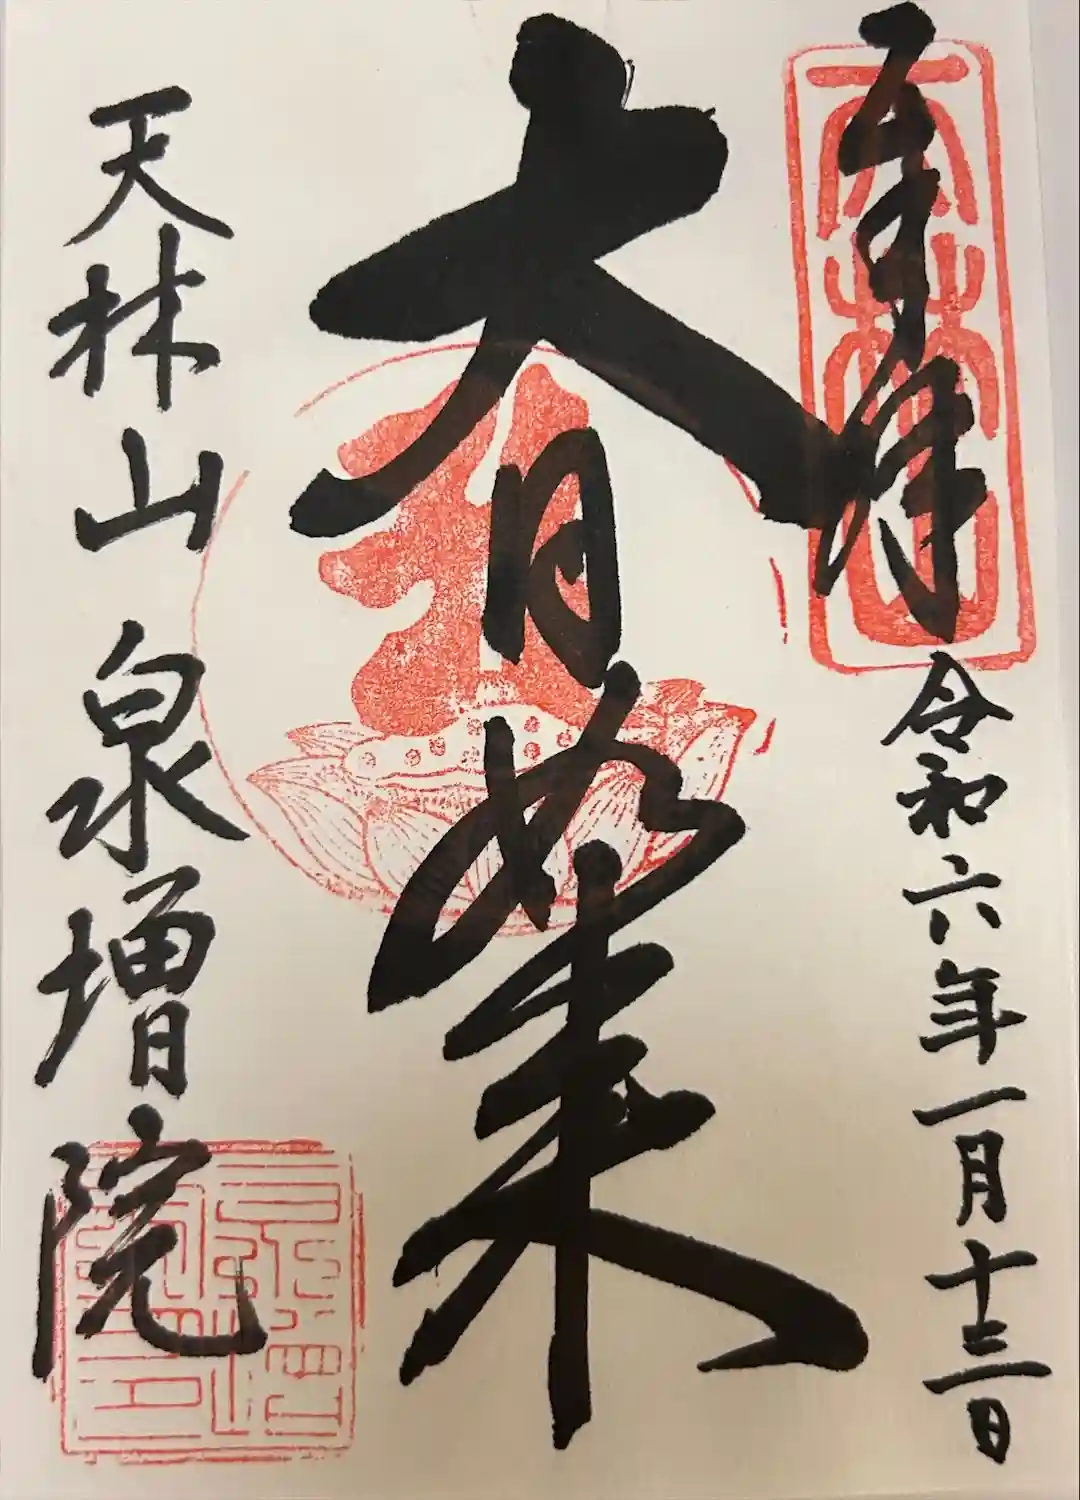 奉拝 令和六年一月十三日
天林山
大日如来
天林山泉増院